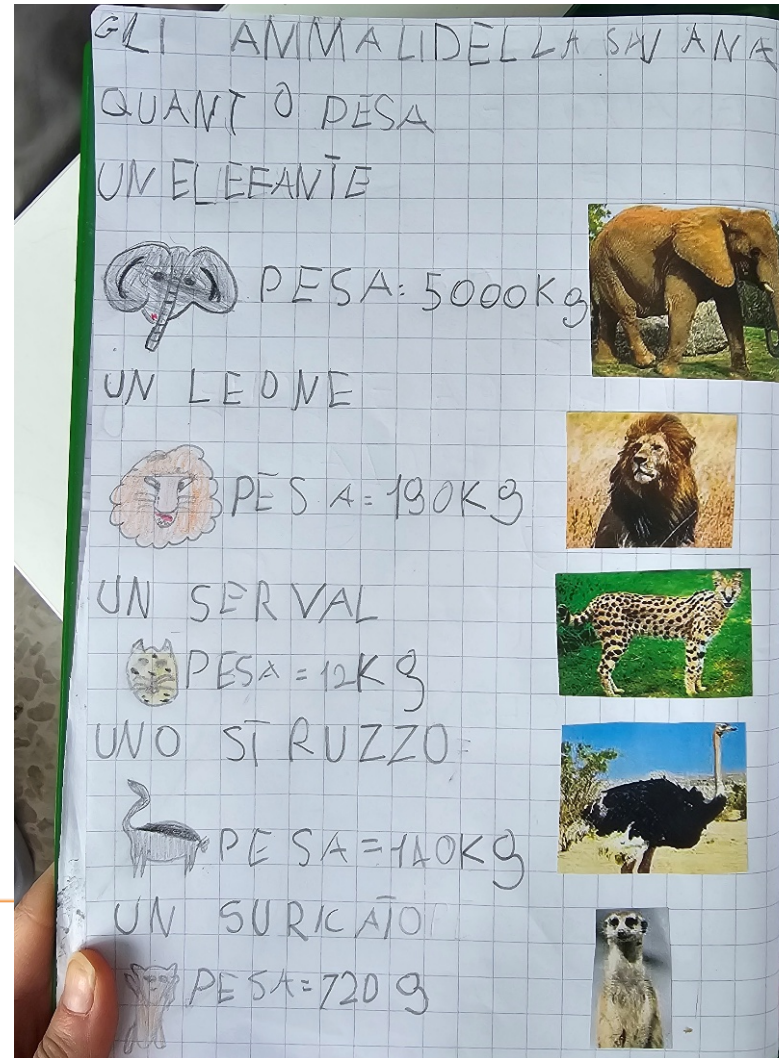 GLI ANIMALI DELLA SAVANA
QUANTO PESA
UN ELEFANTE
PESA: 5000Kg
UN LEONE
PESA= 190Kg
UN SERVAL
PESA=12Kg
UNO STRUZZO=
PESA=140Kg
UN SURICATO
PESA=720 g